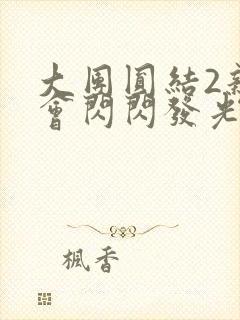 大团圓結2新
會閃閃發光
枫香